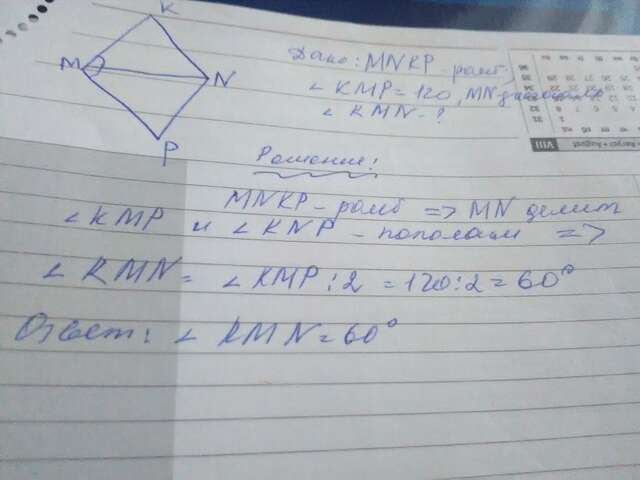 K
M
N
P
Дано: MNKP - ромб.
∠ KMP = 120, MN
∠ KMN - ?
Решение:
MNKP - ромб => MN делит
∠ KMP и ∠ KNP - пополам =>
∠ KMN = ∠ KMP : 2 = 120 : 2 = 60°
Ответ: ∠ KMN = 60°
VIII Август • August